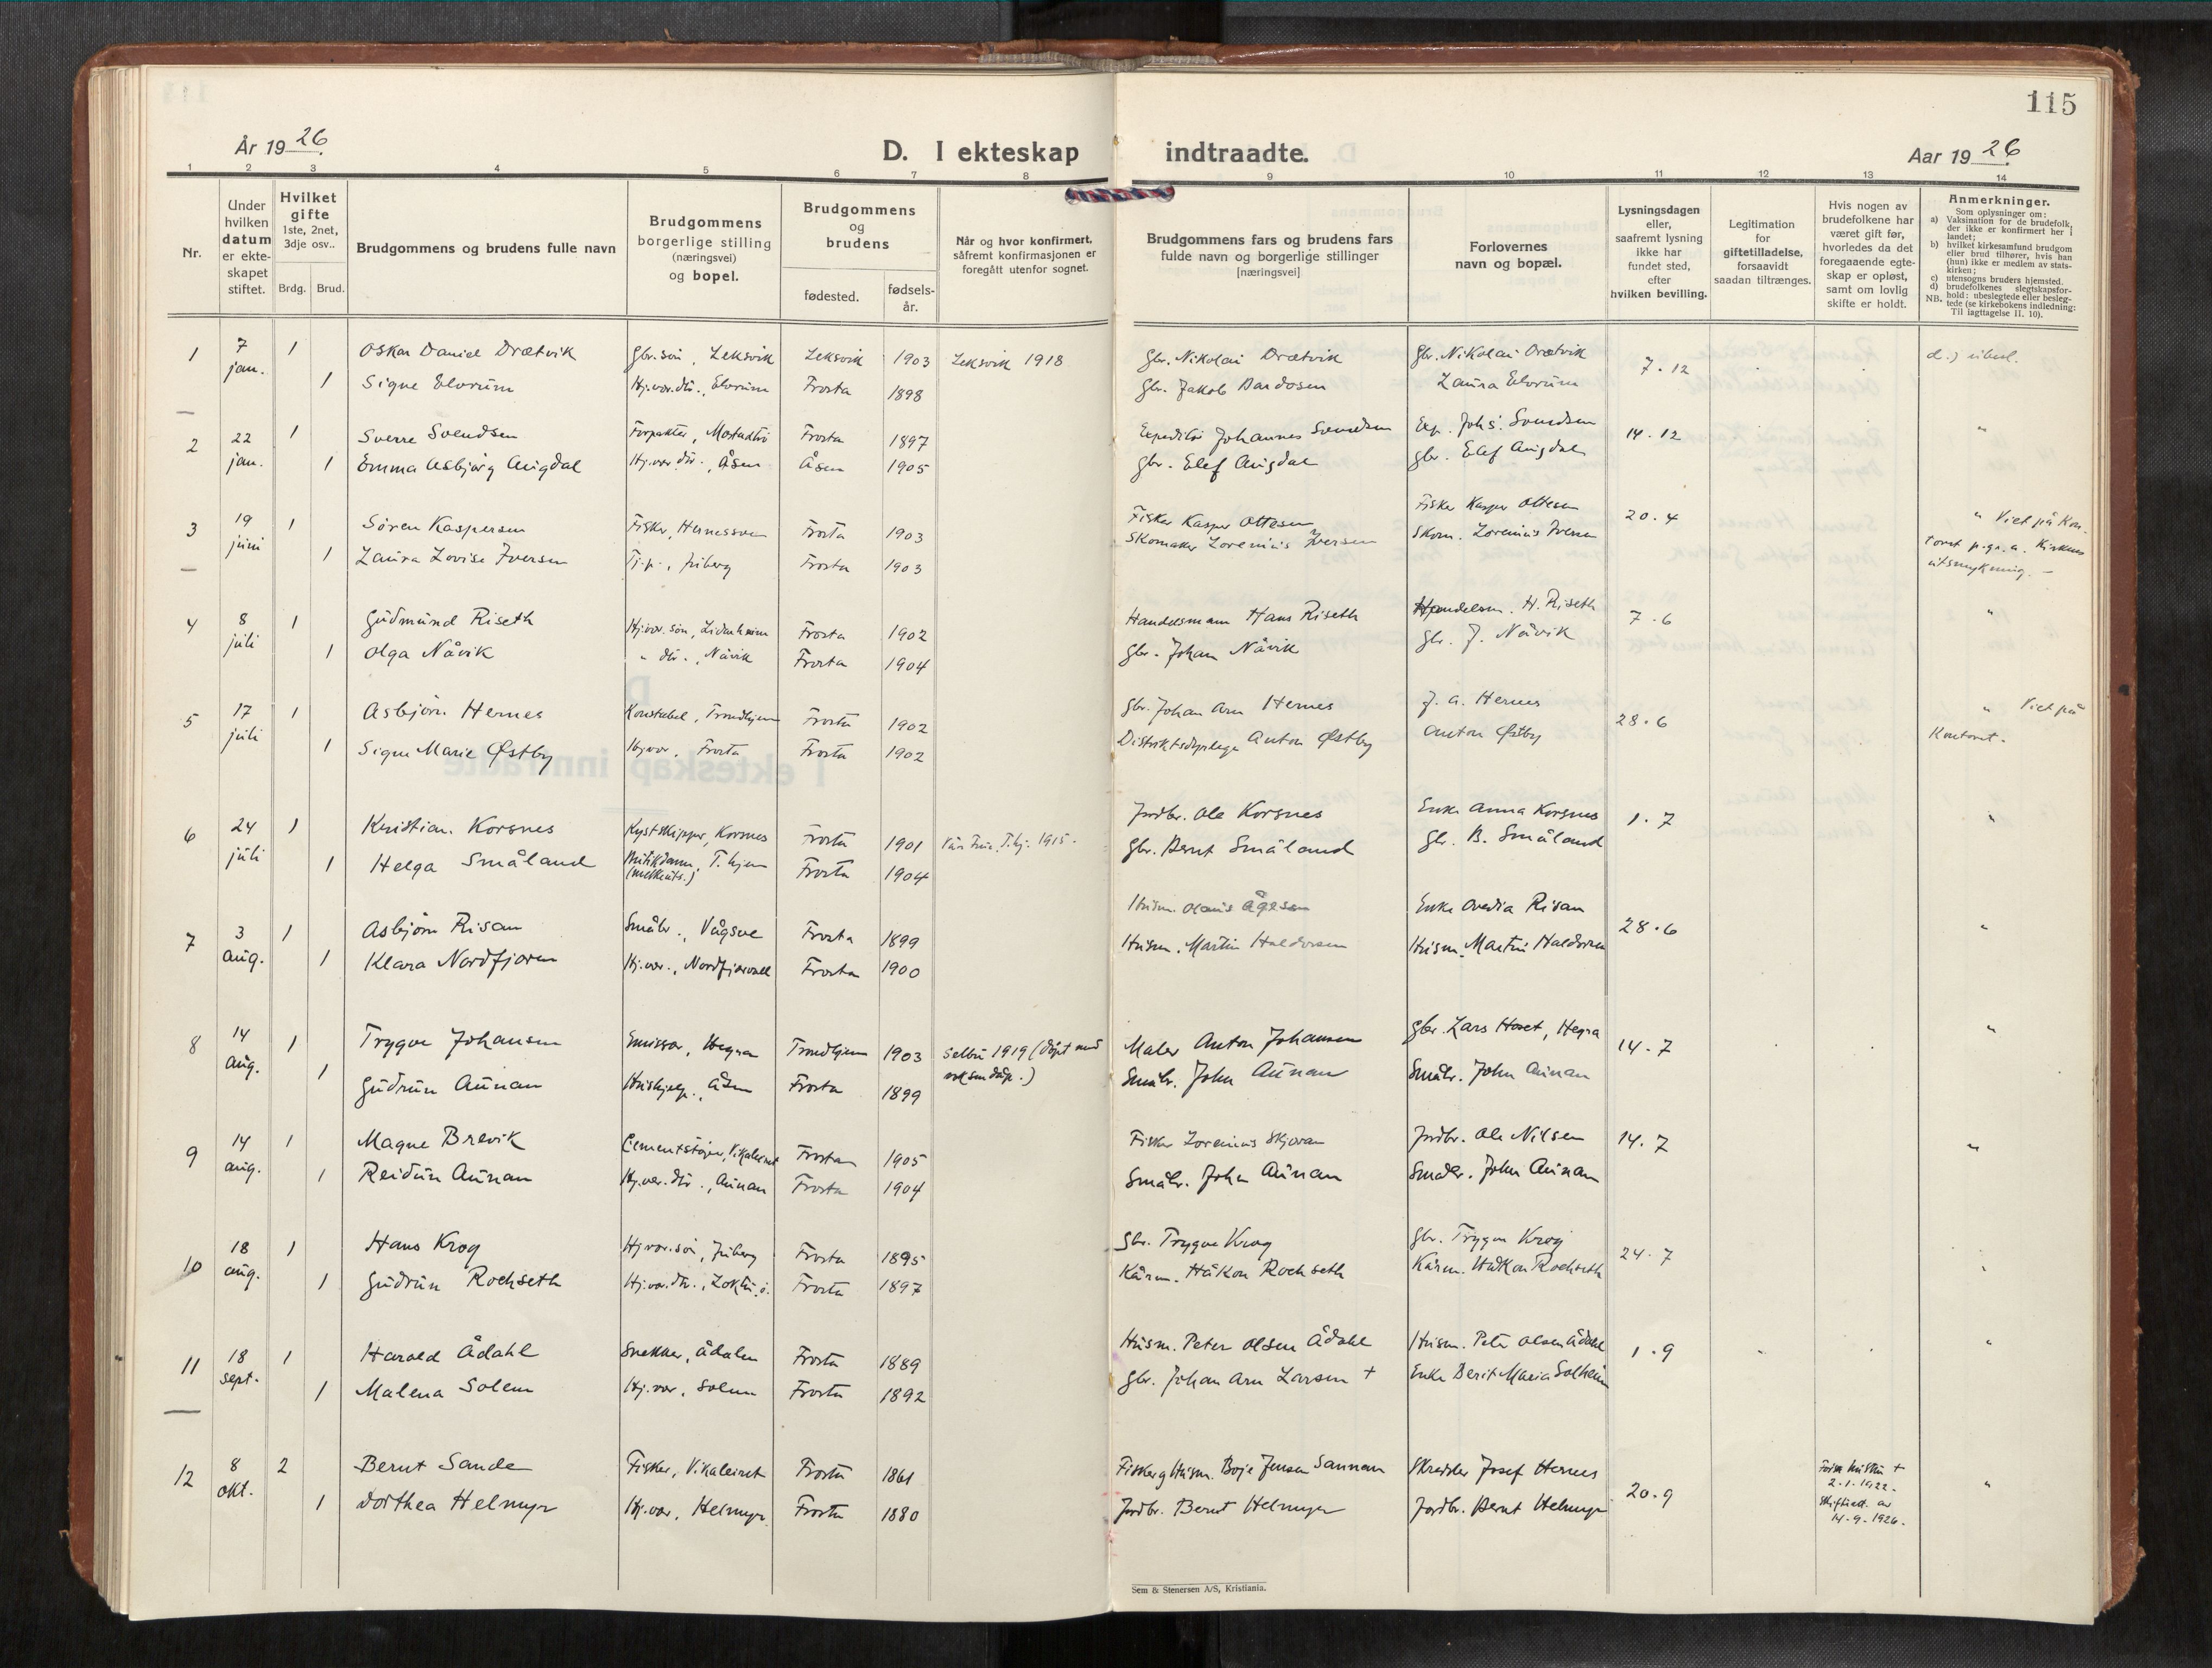 115
År 1926.
D. I ekteskap indtraadte.
Aar 1926.
1 2 3 4 5 6 7 8 9 10 11 12 13 14
Nr.
Under hvilken datum er ekte-skapet stiftet.
Hvilket gifte 1ste, 2net, 3dje osv..
Brdg. Brud.
Brudgommens og brudens fulle navn
Brudgommens borgerlige stilling (næringsvei) og bopel.
Brudgommens og brudens
fødested. fødsels-år.
Når og hvor konfirmert, såfremt konfirmasjonen er foregått utenfor sognet.
Brudgommens fars og brudens fars fulde navn og borgerlige stillinger [næringsvei]
Forlovernes navn og bopæl.
Lysningsdagen eller, saafremt lysning ikke har fundet sted, efter hvilken bevilling.
Legitimation for giftetilladelse, forsaavidt saadan tiltrænges.
Hvis nogen av brudefolkene har været gift før, hvorledes da det foregaaende egte-skap er opløst, samt om lovlig skifte er holdt.
Anmerkninger.
Som oplysninger om:
a) Vaksination for de brudefolk, der ikke er konfirmert her i landet;
b) hvilket kirkesamfund brudgom eller brud tilhører, hvis han (hun) ikke er medlem av stats-kirken;
c) utensogns bruders hjemsted.
d) brudefolkenes slegtskapsfor-hold: ubeslegtede eller besleg-tede (se kirkebokens indledning: Til iagttagelse II. 10).
NB.
1 7 jan. 1 Oskar Daniel Drætvik Gbr.søn, Leksvik Leksvik 1903 Leksvik 1918 Gbr. Nikolai Drætvik Gbr. Nikolai Drætvik 7.12 d.) ubesl.
1 Signe Elvrum Hj.vær.dtr., Elvrum Frosta 1898 Gbr. Jakob Bardosen Laura Elvrum
2 22 jan. 1 Sverre Svendsen Forpakter, Frosta 1897 Expeditør Johannes Svendsen Exp. Johs. Svendsen 14.12 "
1 Emma Asbjørg Augdal Hj.vær.dtr., Åsen Åsen 1905 Gbr. Elef Augdal Gbr. Elef Augdal
3 19 juni 1 Søren Kaspersen Fisker, Frosta 1903 Fisker Kasper Ottesen Fisker Kasper Ottesen 20.4 " Viet på Kon-
1 Laura Lovise Iversen Tj.p., Juberg Frosta 1903 Skomaker Lorenius Iversen Skom. Lorenius Iversen toret p.gr.a. Kirkens
utsmykning. –
4 8 juli 1 Gudmund Riseth Hj.vær.søn, Frosta 1902 Handelsmann Hans Riseth Handelsm. H. Riseth 7.6 "
1 Olga Nåvik " dtr., Nåvik Frosta 1904 Gbr. Johan Nåvik Gbr. J. Nåvik
5 17 juli 1 Asbjørn Hernes Konstabel, Trondhjem Frosta 1902 Gbr. Johan Arn Hernes J. A. Hernes 28.6 " Viet på
1 Signe Marie Østby Hj.vær, Frosta Frosta 1902 Anton Østby Anton Østby Kontoret.
6 24 juli 1 Kristian Korsnes Kystskipper, Korsnes Frosta 1901 Vår Frue, T.hj. 1915. Jordbr. Ole Korsnes Enke Anna Korsnes 1.7 "
1 Helga Småland Butikdame, T.hjem Frosta 1904 Gbr. Bernt Småland Gbr. B. Småland
(melkeuts.)
7 3 aug. 1 Asbjørn Risan Småbr., Vågsve Frosta 1899 Husm. Olaus Ågesen Enke Ovedia Risan 28.6 "
1 Klara Nordfjæren Hj.vær., Frosta 1900 Husm. Martin Haldorsen Husm. Martin Haldorsen
8 14 aug. 1 Trygve Johansen Emissær, Hegra Trondhjem 1903 Selbu 1919 (døpt med Maler Anton Johansen Gbr. Lars Hovet, Hegra 14.7 "
1 Gudrun Aunan Hushjelp, Åsen Frosta 1899 voksendåp.) Småbr. John Aunan Småbr. John Aunan
9 14 aug. 1 Magne Brevik Cementstøper, Vikaleiret Frosta 1905 Fisker Lorenius Skjæran Jordbr. Ole Nilsen 14.7 "
1 Reidun Aunan Hj.vær.dtr., Aunan Frosta 1904 Småbr. John Aunan Småbr. John Aunan
10 18 aug. 1 Hans Krog Hj.vær.søn, Juberg Frosta 1895 Gbr. Trygve Krog Gbr. Trygve Krog 24.7 "
1 Gudrun Rochseth Hj.vær.dtr., Loktu ø. Frosta 1897 Kårm. Håkon Rochseth Kårm. Håkon Rochseth
11 18 sept. 1 Harald Ådahl Snekker, Ådalen Frosta 1889 Husm. Peter Olsen Ådahl Husm. Peter Olsen Ådahl 1.9 "
1 Malena Solem Hj.vær, Solem Frosta 1892 Gbr. Johan Arn Larsen + Enke Berit Maria Solheim
12 8 okt. 2 Bernt Sande Fisker, Vikaleiret Frosta 1861 Fisker og Husm. Boje Jensen Sannan Skredder Josef Hernes 20.9 Forr. hustru + 2.1.1922. "
1 Dorthea Helmyr Hj.vær, Helmyr Frosta 1880 Jordbr. Bernt Helmyr Jordbr. Bernt Helmyr Skifteatt. av 14.9.1926.
Sem & Stenersen A/S, Kristiania.